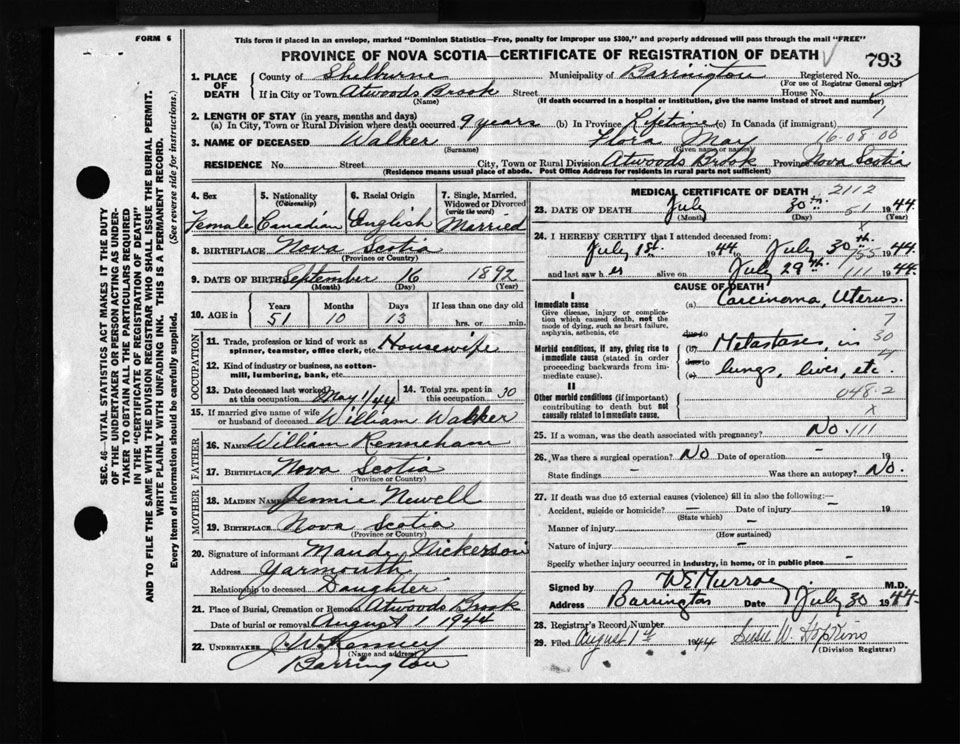 FORM 6
This form if placed in an envelope, marked "Dominion Statistics—Free, penalty for improper use $300," and properly addressed will pass through the mail "FREE"
PROVINCE OF NOVA SCOTIA—CERTIFICATE OF REGISTRATION OF DEATH
793
1. PLACE OF DEATH
County of Shelburne Municipality of Barrington Registered No.
(For use of Registrar General only)
If in City or Town Atwoods Brook Street House No.
(Name) (If death occurred in a hospital or institution, give the name instead of street and number)
2. LENGTH OF STAY (in years, months and days)
(a) In City, Town or Rural Division where death occurred 9 years (b) In Province Lifetime (c) In Canada (if immigrant)
16-08 00
3. NAME OF DECEASED Walker Flora May
(Surname) (Given name or names)
RESIDENCE No Street City, Town or Rural Division Atwoods Brook Province Nova Scotia
(Residence means usual place of abode. Post Office Address for residents in rural parts not sufficient)
4. Sex 5. Nationality (Citizenship) 6. Racial Origin 7. Single, Married, Widowed or Divorced (write the word)
Female Canadian English Married
8. BIRTHPLACE Nova Scotia
(Province or Country)
9. DATE OF BIRTH September 16 1892
(Month) (Day) (Year)
10. AGE in Years Months Days If less than one day old
51 10 13 hrs. or min.
OCCUPATION
11. Trade, profession or kind of work as spinner, teamster, office clerk, etc. Housewife
12. Kind of industry or business, as cotton-mill, lumbering, bank, etc.
13. Date deceased last worked at this occupation May 1/44 14. Total yrs. spent in this occupation 30
15. If married give name of wife or husband of deceased William Walker
FATHER
16. NAME William
17. BIRTHPLACE Nova Scotia
(Province or Country)
MOTHER
18. MAIDEN NAME Jennie Newell
19. BIRTHPLACE Nova Scotia
(Province or Country)
20. Signature of informant Maude Nickerson
Address Yarmouth
Relationship to deceased Daughter
21. Place of Burial, Cremation or Removal Atwoods Brook
Date of burial or removal August 1 1944
22. UNDERTAKER
(Name and address)
Barrington
MEDICAL CERTIFICATE OF DEATH
2112
23. DATE OF DEATH July 30th 51 1944
(Month) (Day) (Year)
x
24. I HEREBY CERTIFY that I attended deceased from:
July 1st. 1944 July 30th. 1944
155
and last saw her alive on July 29th. 1944
111
CAUSE OF DEATH
I
Immediate cause (a) Carcinoma, Uterus.
Give disease, injury or complication which caused death, not the mode of dying, such as heart failure, asphyxia, asthenia, etc
7
due to
30
Morbid conditions, if any, giving rise to immediate cause (stated in order proceeding backwards from immediate cause).
(b) Metastases, in
due to
(c) lungs, liver, etc.
II
Other morbid conditions (if important) contributing to death but not causally related to immediate cause.
048-2
x
25. If a woman, was the death associated with pregnancy? No. 111
26. Was there a surgical operation? No Date of operation – 19
State findings – Was there an autopsy? No.
27. If death was due to external causes (violence) fill in also the following:—
Accident, suicide or homicide? – Date of injury – 19
(State which)
Manner of injury –
(How sustained)
Nature of injury –
Specify whether injury occurred in industry, in home, or in public place –
Signed by M.D.
Address Barrington Date July 30 1944
28. Registrar's Record Number
29. Filed August 1st 1944 Susie W. Hopkins
(Division Registrar)
SEC. 46—VITAL STATISTICS ACT MAKES IT THE DUTY OF THE UNDERTAKER OR PERSON ACTING AS UNDERTAKER TO OBTAIN ALL THE PARTICULARS REQUIRED IN THE "CERTIFICATE OF REGISTRATION OF DEATH"
AND TO FILE THE SAME WITH THE DIVISION REGISTRAR WHO SHALL ISSUE THE BURIAL PERMIT.
WRITE PLAINLY WITH UNFADING INK. THIS IS A PERMANENT RECORD.
Every item of information should be carefully supplied. (See reverse side for instructions.)